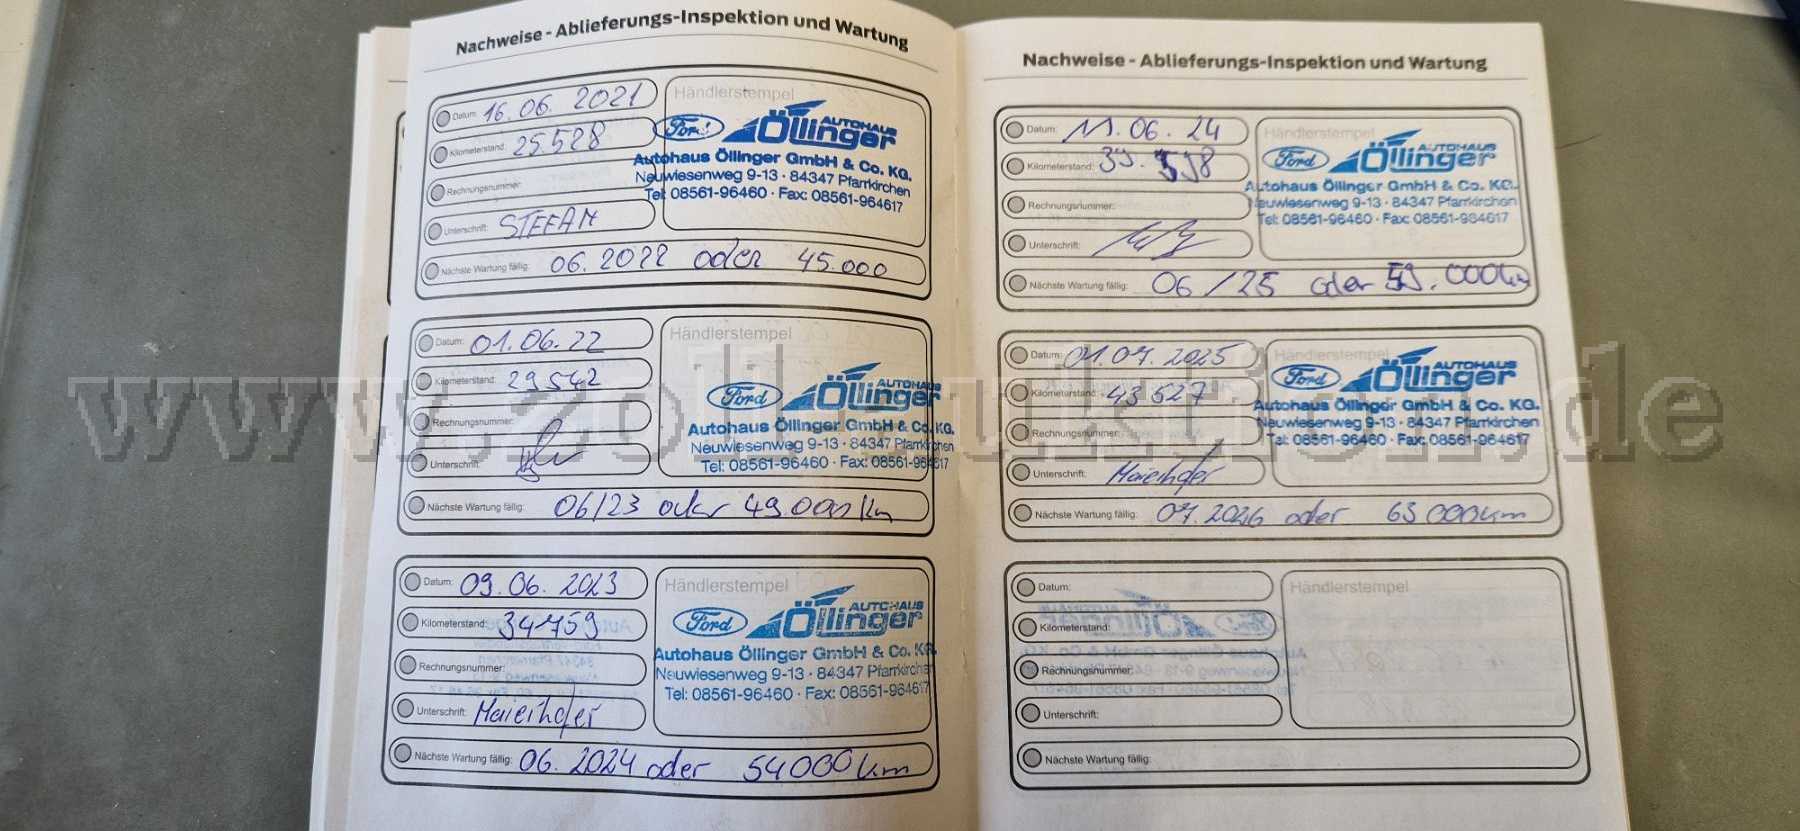 Nachweise - Ablieferungs-Inspektion und Wartung
Datum: 16.06.2021
Kilometerstand: 25.528
Rechnungsnummer:
Unterschrift: STEFAN
Nächste Wartung fällig: 06.2022 oder 45.000
Händlerstempel
Ford AUTOHAUS Öllinger
Autohaus Öllinger GmbH & Co. KG.
Neuwiesenweg 9-13 · 84347 Pfarrkirchen
Tel: 08561-96460 · Fax: 08561-964617
Datum: 01.06.22
Kilometerstand: 29542
Rechnungsnummer:
Unterschrift:
Nächste Wartung fällig: 06/23 oder 49.000 km
Händlerstempel
Ford AUTOHAUS Öllinger
Autohaus Öllinger GmbH & Co. KG.
Neuwiesenweg 9-13 · 84347 Pfarrkirchen
Tel: 08561-96460 · Fax: 08561-964617
Datum: 09.06.2023
Kilometerstand: 34759
Rechnungsnummer:
Unterschrift: Maierhofer
Nächste Wartung fällig: 06.2024 oder 54000 km
Händlerstempel
Ford AUTOHAUS Öllinger
Autohaus Öllinger GmbH & Co. KG.
Neuwiesenweg 9-13 · 84347 Pfarrkirchen
Tel: 08561-96460 · Fax: 08561-964617
Nachweise - Ablieferungs-Inspektion und Wartung
Datum: 11.06.24
Kilometerstand: 39.598
Rechnungsnummer:
Unterschrift:
Nächste Wartung fällig: 06/25 oder 59.000km
Händlerstempel
Ford AUTOHAUS Öllinger
Autohaus Öllinger GmbH & Co. KG.
Neuwiesenweg 9-13 · 84347 Pfarrkirchen
Tel: 08561-96460 · Fax: 08561-964617
Datum: 01.07.2025
Kilometerstand: 43527
Rechnungsnummer:
Unterschrift: Maierhofer
Nächste Wartung fällig: 07.2026 oder 63000km
Händlerstempel
Ford AUTOHAUS Öllinger
Autohaus Öllinger GmbH & Co. KG.
Neuwiesenweg 9-13 · 84347 Pfarrkirchen
Tel: 08561-96460 · Fax: 08561-964617
Datum:
Kilometerstand:
Rechnungsnummer:
Unterschrift:
Nächste Wartung fällig:
Händlerstempel
www.zoll-auktion.de